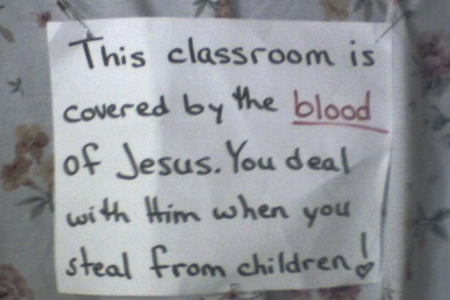 This classroom is
covered by the blood
of Jesus. You deal
with Him when you
steal from children!